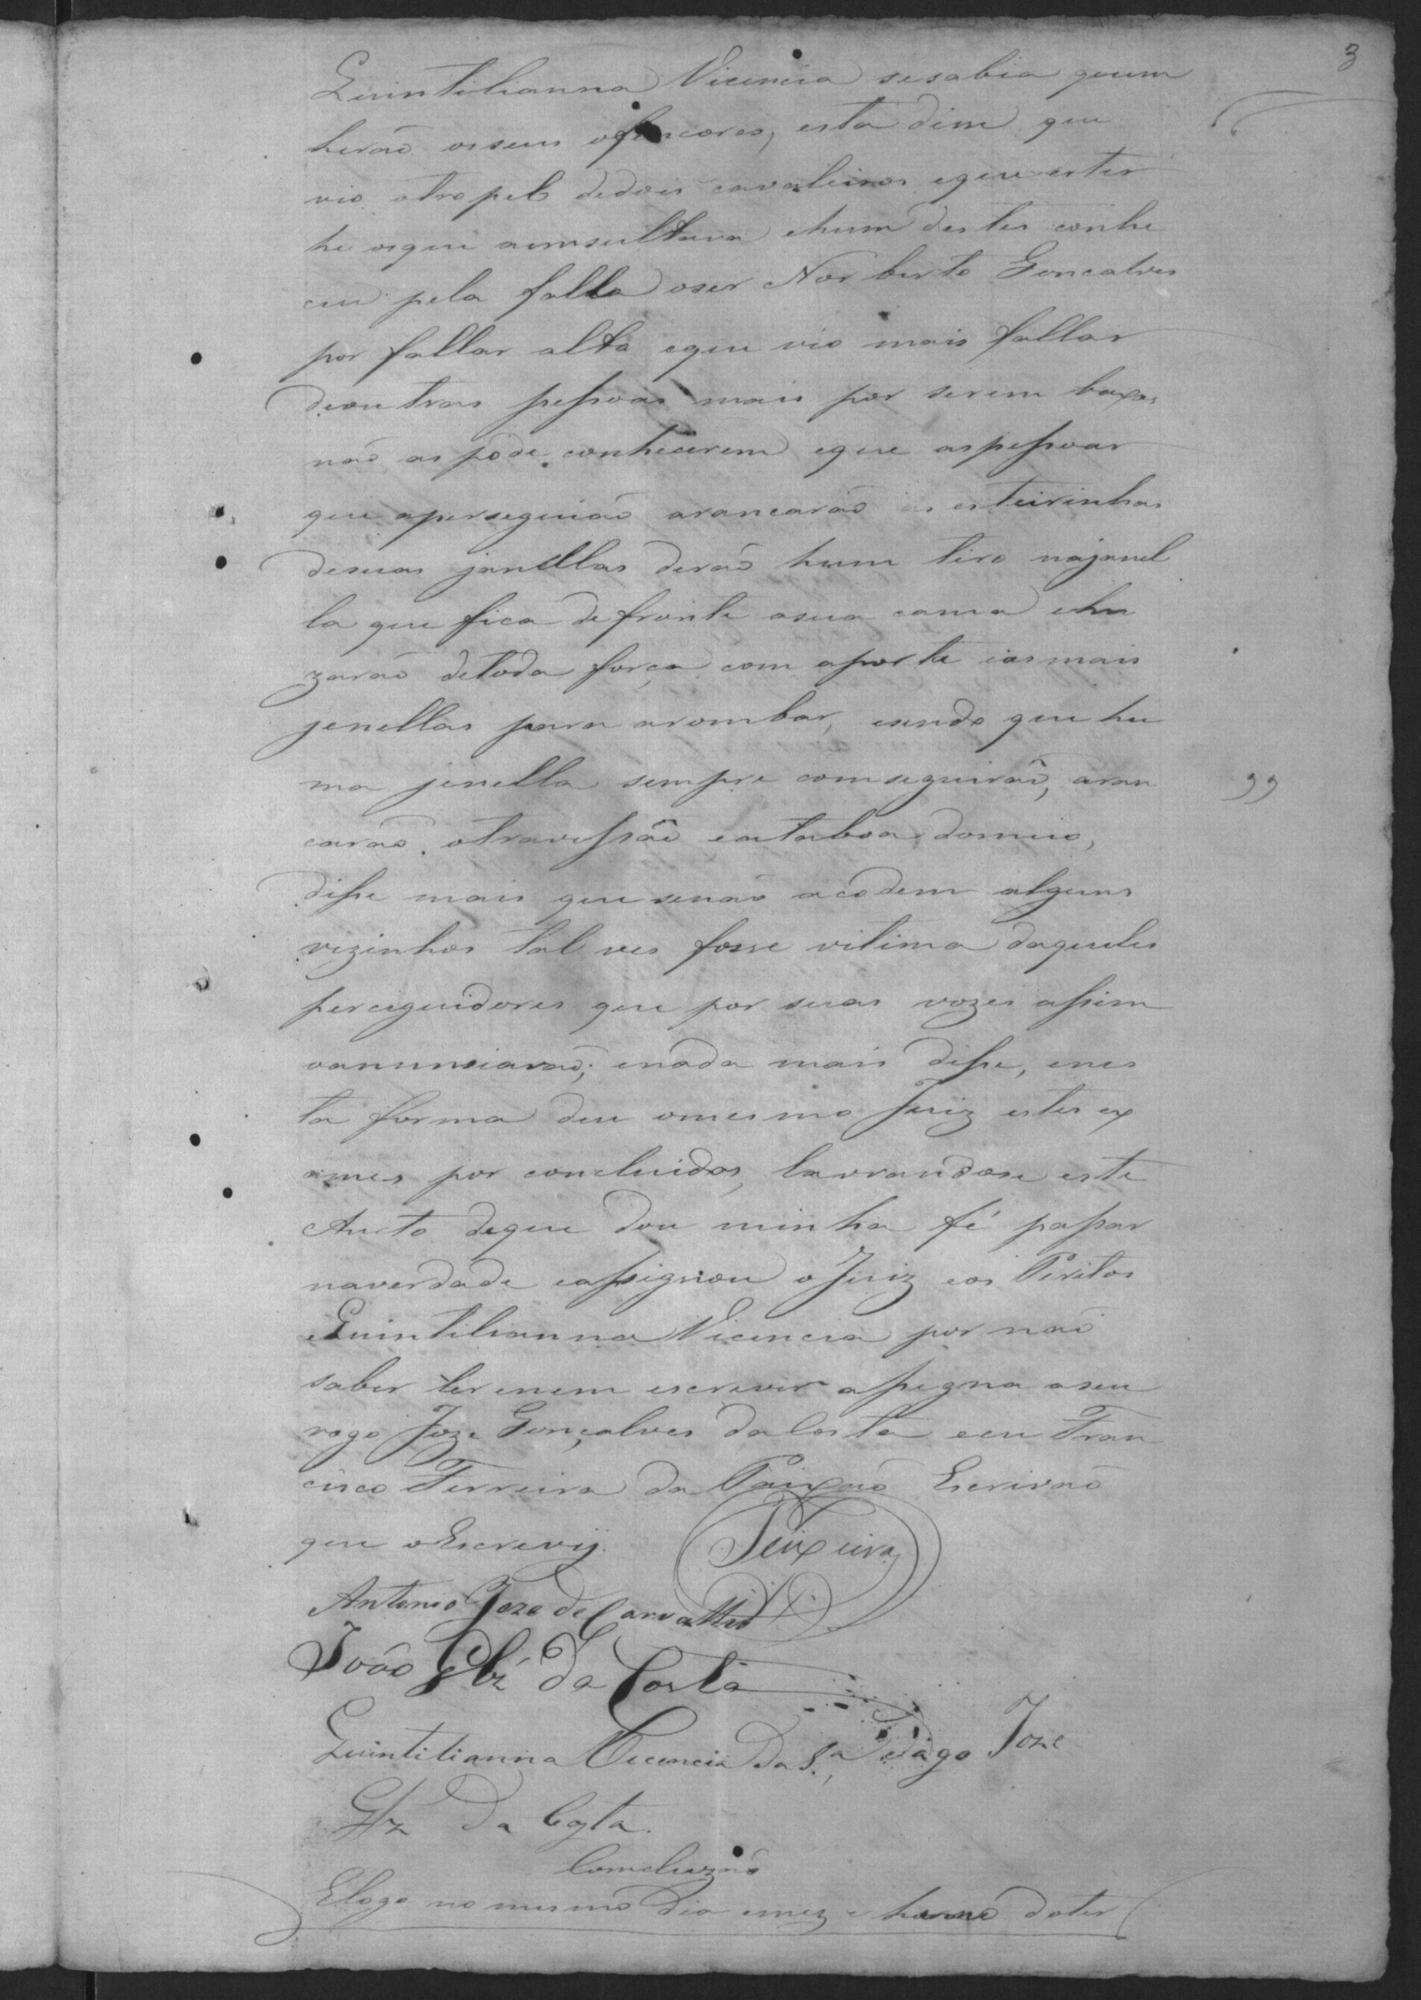 3
Quintilianna Vicencia sesabia quem
herão osseus ofencores, esta dice que
vio otropel dedois cavaleiros eque estes
he osque aumsultava ehum destes conhe
ceu pela falla oser Norberto Goncalves
por fallar alto eque vio mais fallar
deoutras pessoas mais por serem baxas
não as pode conhecerem eque aspessoas
que aperseguião arancarão as esteirinhas
desuas janellas derão hum tiro najanel
la que fica defronte asua cama efor
zarão detoda força com aporta easmais
jenellas para arombar, esendo que hu
ma jenella sempre comseguirão, aran
carão otravessão eataboa domeio,
disse mais que senão acodem alguns
vizinhos tal ves fosse vitima daqueles
perceguidores que por suas vozes assim
oanunsiavão; enada mais disse, enes
ta forma deu omesmo Juiz estes ex
ames por concluidos, lavrandose este
Auto deque dou minha fé passar
naverdade eassignou o Juiz eos Peritos
eQuintilianna Vicencia por não
saber ler enem escrever assigna aseu
rogo Joze Gonçalves da Costa eeu Fran
cisco Ferreira da Paixão Escrivão
que oEscrevij. Teixeira
Antonio Joze de Carvalho
João Glz' da Costa
Quintilianna Vicencia da S.a Joze
Glz da Costa.
Comcluzão
Elogo no mesmo dia emez e hanno